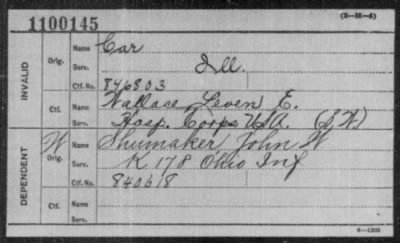 1100145
(3—H—4)
INVALID
Orig.
Name Car
Serv. Ill.
Ctf. No. 846803
Ctf.
Name Wallace Leven E.
Serv. Hosp. Corps U.S.A. (S.W)
DEPENDENT
W
Orig.
Name Shumaker John W
Serv. K 178 Ohio Inf
Ctf. No. 840618
Ctf.
Name
Serv.